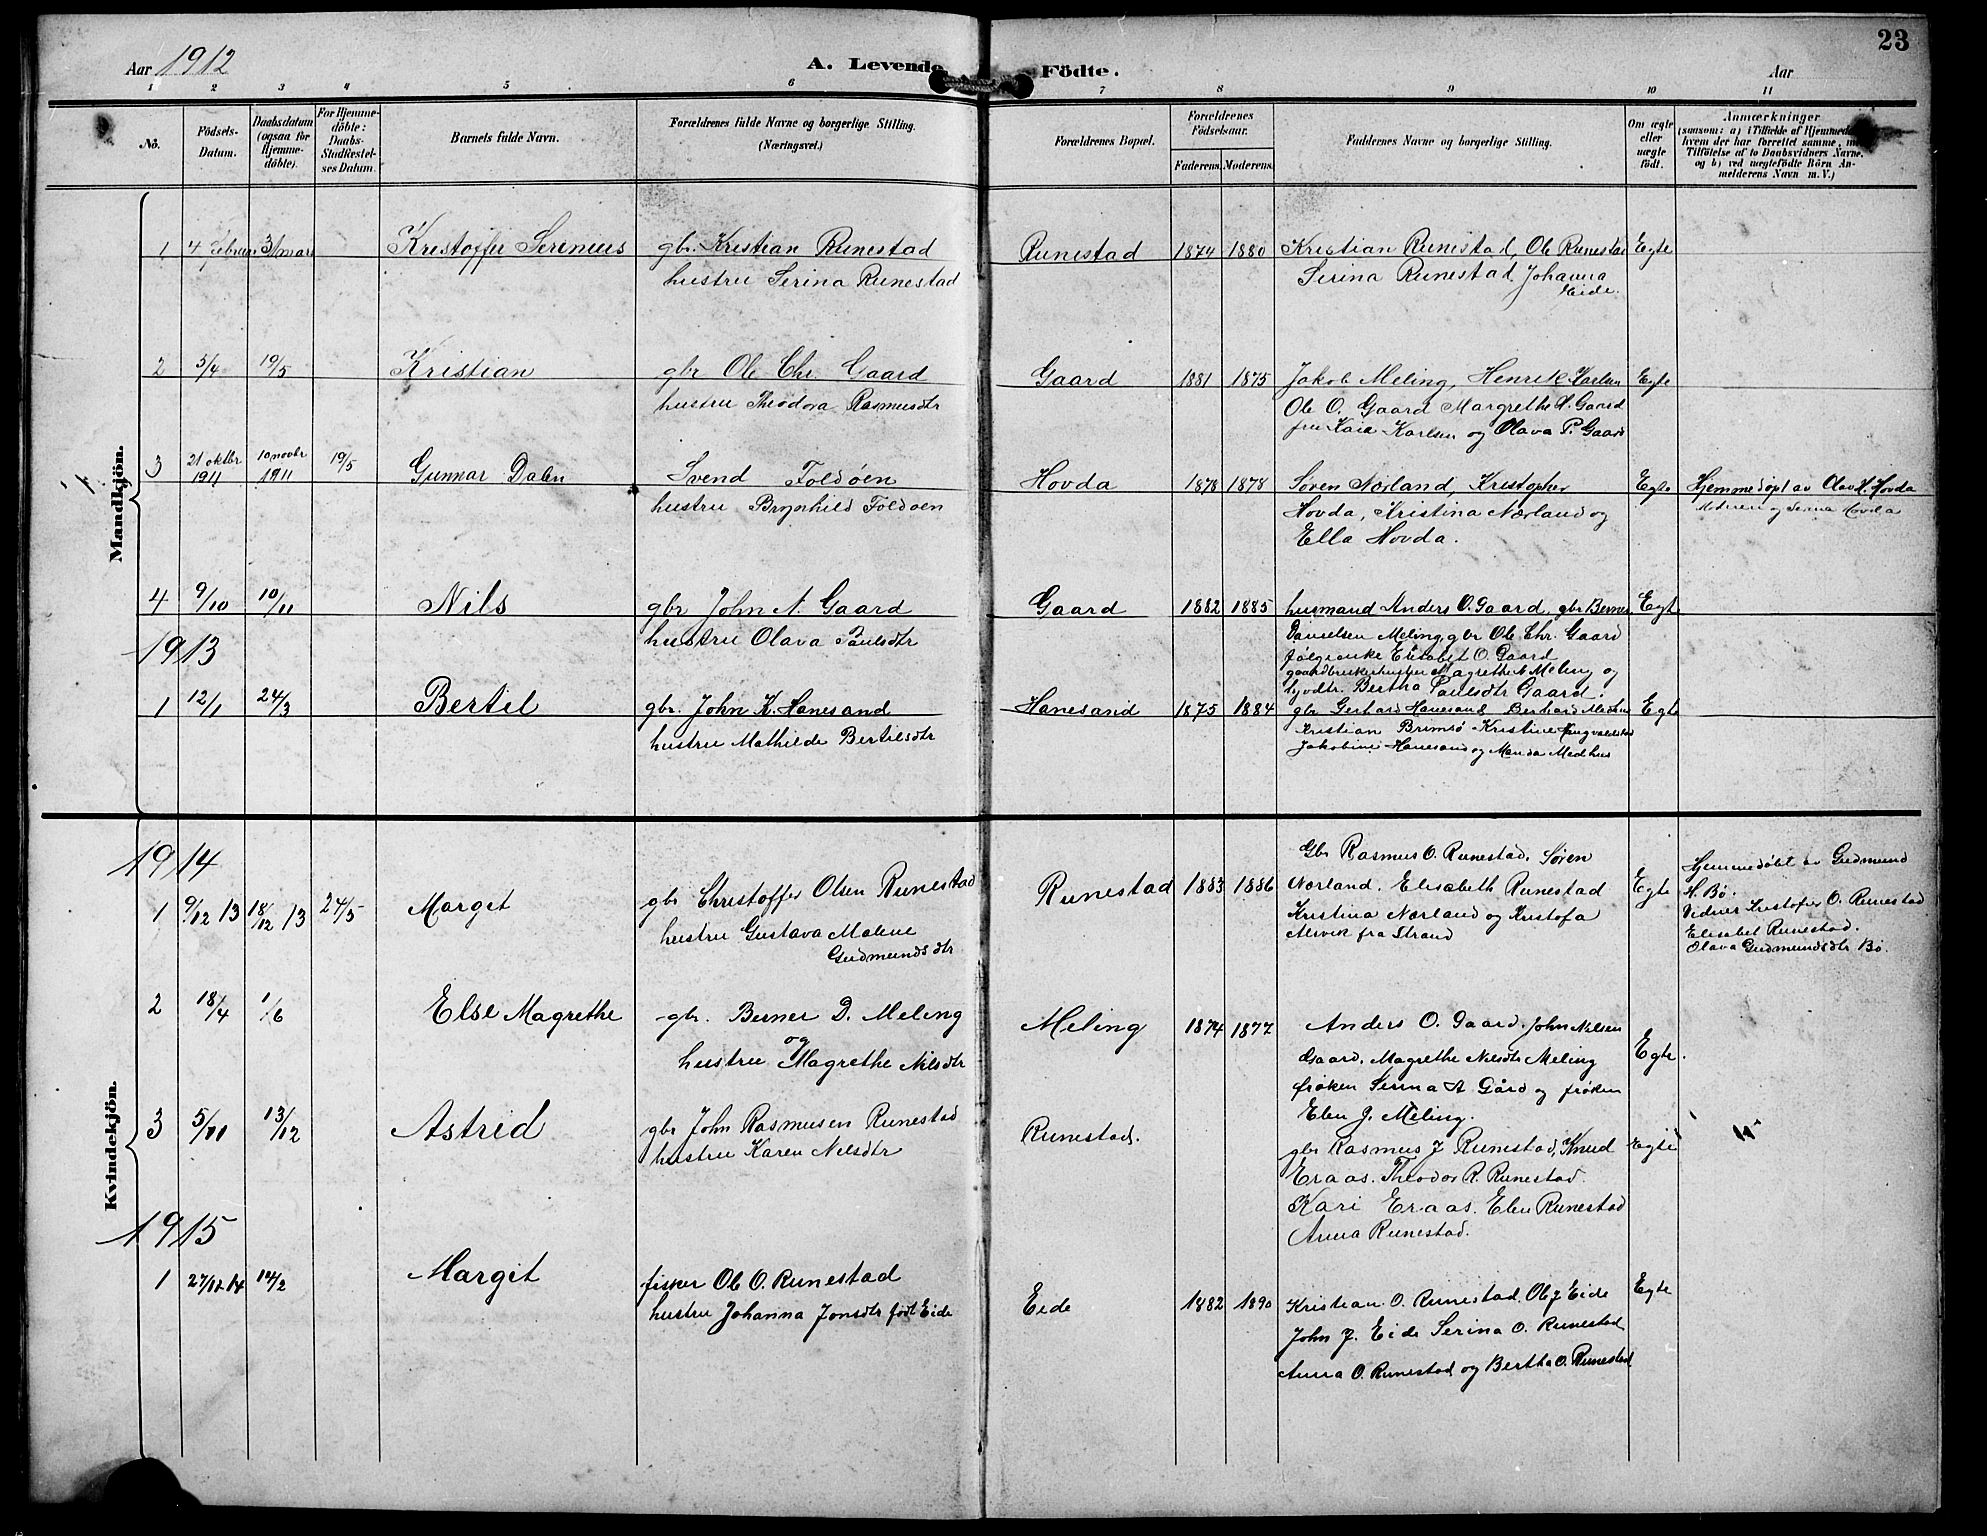 Aar 1912
A. Levende Födte.
Aar
23
1 2 3 4 5 6 7 8 9 10 11
No.
Födsels-Datum.
Daabsdatum (ogsaa for Hjemme-döbte).
For Hjemme-döbte: Daabs-Stadfæstel-ses Datum.
Barnets fulde Navn.
Forældrenes fulde Navne og borgerlige Stilling. (Næringsvei.)
Forældrenes Bopæl.
Forældrenes Födselsaar.
Faderens. Moderens.
Faddernes Navne og borgerlige Stilling.
Om ægte eller uægte födt.
Anmærkninger
(saasom: a) i Tilfælde af Hjemmedaab
hvem der har forrettet samme, m
Tilföielse af to Daabsvidners Navne,
og b) ved uægtefödte Börn An-
melderens Navn m. V.)
Mandkjön.
1 4 februar 31 mars Krestoffer Serenius gbr. Kristian Runestad Runestad 1874 1880 Kristian Runestad, Ole Runestad Egte
hustru Serina Runestad Serina Runestad Johanna
Eide.
2 5/4 19/5 Kristian gbr Ole Chr. Gaard Gaard 1881 1875 Jakob Meling, Henrik Karlsen Egte
hustru Theodora Rasmusdtr Ole O. Gaard Margrethe N. Gaard
fru Kaia Karlsen og Olava P. Gaard
3 21 oktbr 1911 10 novbr 1911 19/5 Gunnar Dalen Svend Foldøen Hovda 1878 1878 Søren Nørland, Kristopher Egte Hjemmedøpt av Olav H. Hovda
hustru Brynhild Foldøen Hovda, Kristina Nørland og Moderen og Serina Hovda
Ella Hovda.
4 9/10 10/11 Nils gbr John N. Gaard Gaard 1882 1885 husmand Anders O. Gaard, gbr Berner Egte
hustru Olava Paulsdtr Danielsen Meling, gbr Ole Chr. Gaard
1913
følgeenke Elisabet O. Gaard
gaardbrukerhustru Magrethe N Meling og
Bertha Paulsdtr Gaard.
1 12/1 24/3 Bertil gbr. John K. Hanesand Hanesand 1875 1884 gbr Gerhard Hanesand Berhard Medhus Egte
hustru Mathilde Bertilsdtr Kristian Brimsø Kristine
Jakobine Hanesand og Manda Medhus
Kvindekjön.
1914
1 9/12 13 18/12 13 24/5 Margit gbr Christoffer Olsen Runestad Runestad 1883 1886 Gbr Rasmus O. Runestad. Søren Egte Hjemmedøbt av Gudmund
hustru Gustava Malene Nørland. Elisabeth Runestad H. Bø.
Gudmundsdtr Kristina Nørland og Kristofa Vidner Kristofer O. Runestad
Alsvik fra Strand Elisabet Runestad.
Olava Gudmundsdtr Bø.
2 18/4 1/6 Else Magrethe gbr. Berner D. Meling Meling 1874 1877 Anders O. Gaard. John Nilsen Egte.
og
hustru Magrethe Nilsdtr Gaard. Magrethe Nilsdtr Meling
frøken Serina A Gård og frøken
Elen J. Meling.
3 5/11 13/12 Astrid gbr John Rasmusen Runestad Runestad. gbr Rasmus J Runestad, Knud Egte
hustru Karen Nilsdtr Eraas. Theodor R. Runestad.
Kari Eraas. Elen Runestad
Anna Runestad.
1915
1 27/12-14 14/2 Margit fisker Ole O. Runestad Eide 1882 1890 Kristian O. Runestad. Ole J Eide Egte
hustru Johanna Jonsdtr født Eide John J. Eide Serina O. Runestad
Anna O. Runestad og Bertha O. Runestad